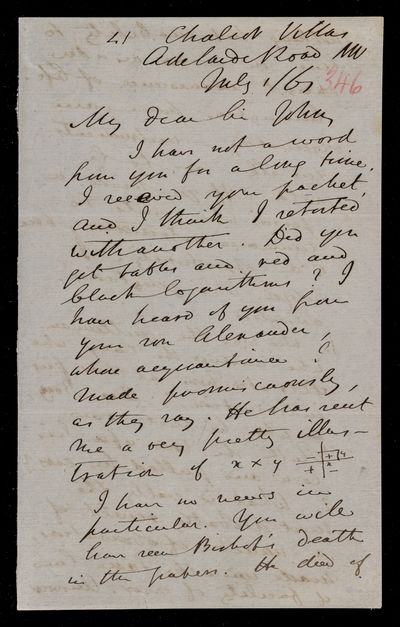 41 Chalcot Villas
Adelaide Road NW
July 1/61
346
My dear Sir John,
I have not a word
from you for a long time.
I received your packet,
and I think I retorted
with another. Did you
get tables and red and
black logarithms? I
have heard of you from
your son Alexander,
whose acquaintance I
made promiscuously,
as they say. He has sent
me a very pretty illus-
tration of x × y
I have no news in
particular. You will
have seen death
in the papers. He died of